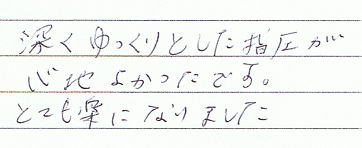 深くゆっくりとした指圧が
心地よかったです。
とても楽になりました